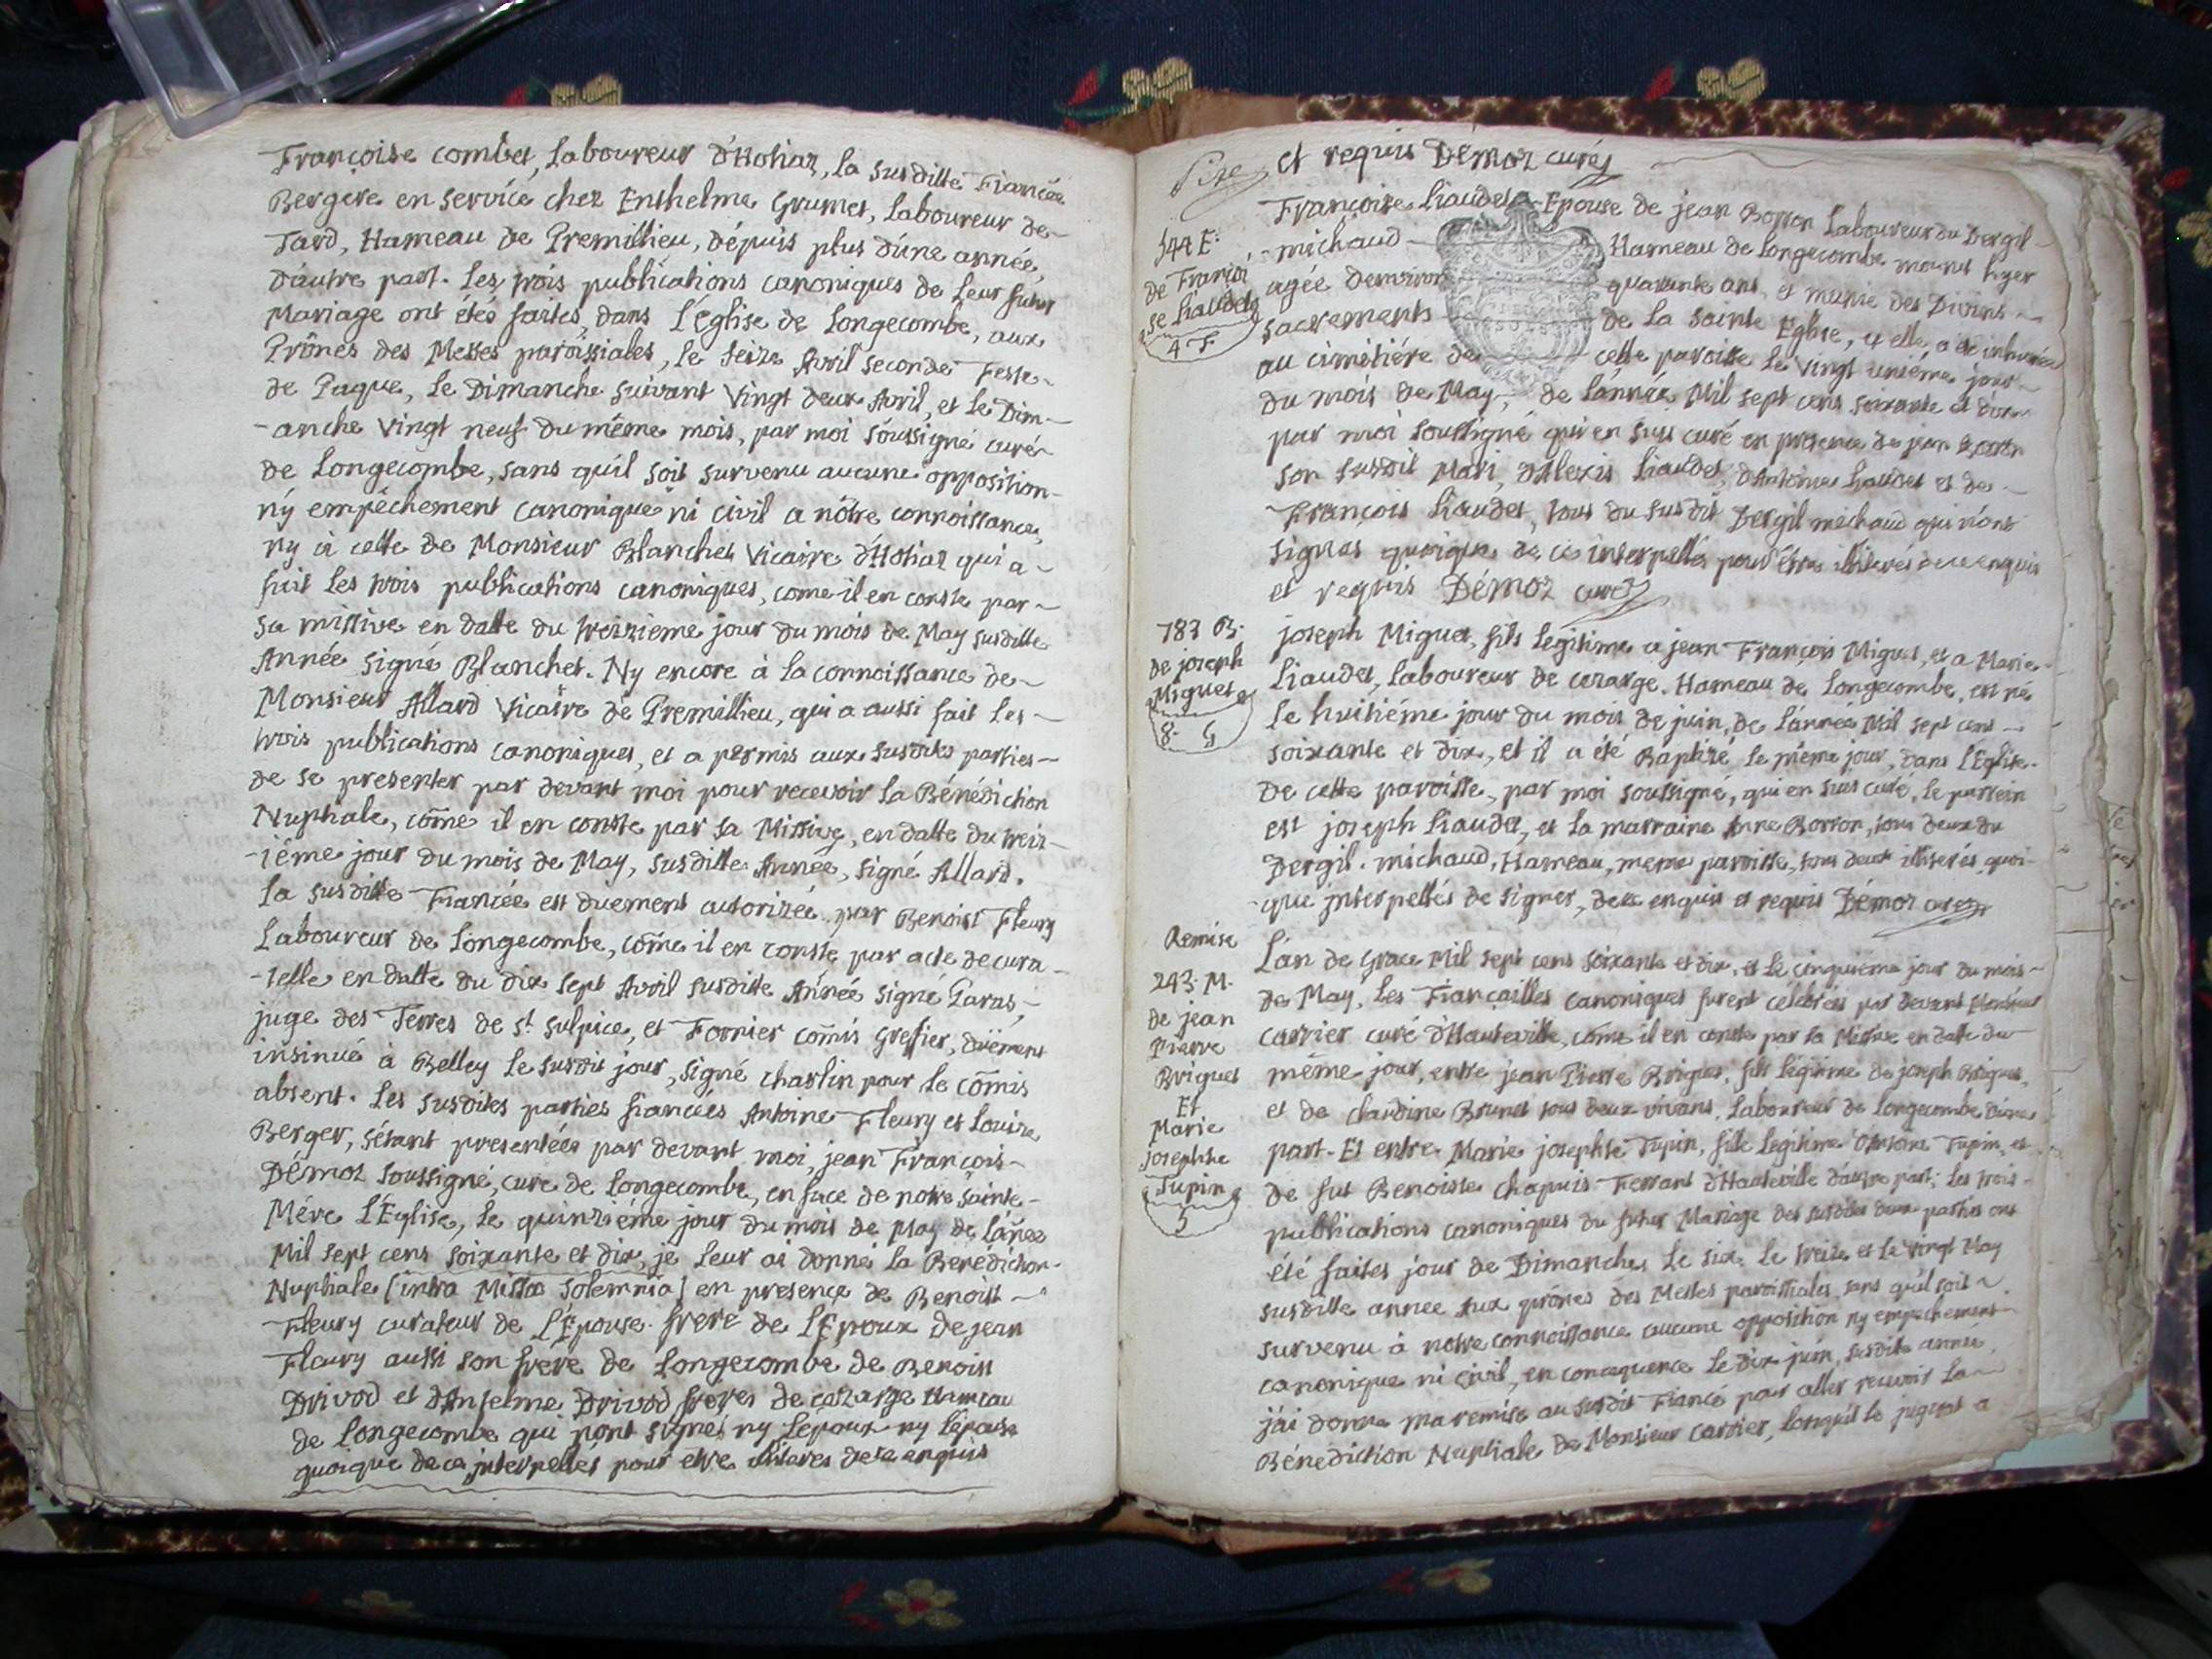 Françoise combet, Laboureur d'Hotiaz, la susditte Fiancée
Bergere en service chez Enthelme Grumet, laboureur de
Tard, Hameau de Premillieu, dépuis plus d'une année,
d'autre part. Les trois publications canoniques de leur futur
Mariage ont étés faites, dans l'Église de Longecombe, aux
Prônes des Messes paroissiales, le seize Avril seconde Feste
de Paque, le Dimanche suivant vingt deux Avril, et le Dim-
-anche vingt neuf du même mois, par moi soussigné curé
de Longecombe, sans qu'il soit survenu aucune opposition
ny empêchement canonique ni civil a nôtre connoissance,
ny à celle de Monsieur Blanchet vicaire d'Hotiaz qui a
fait les trois publications canoniques, come il en conste par
sa missive en datte du treizieme jour du mois de May susditte
Année signé Blanchet. Ny encore à la connoissance de
Monsieur Allard vicaire de Premillieu, qui a aussi fait les
trois publications canoniques, et a permis aux susdites parties
de se presenter par devant moi pour recevoir la Bénédiction
Nuptiale, côme il en conste par sa Missive, en datte du treiz-
-iême jour du mois de May, susditte Année, signé Allard.
La susditte Fiancée est duement autorizée par Benoist Fleury
Laboureur de Longecombe, côme il en conste par acte de cura-
-telle en datte du dix sept Avril susditte Année signé Paras,
juge des Terres de st sulpice, et Fornier cômis Grefier, duëment
insinué à Belley le susdit jour, signé charlin pour le cômis
absent. Les susdites parties fiancées Antoine Fleury et Louise
Berger, s'étant presentées par devant moi, jean François
Démoz soussigné, curé de Longecombe, en face de notre sainte
Mére l'Église, le quinziéme jour du mois de May de l'añée
Mil sept cens soixante et dix, je leur ai donné la Bénédiction
Nuptiale [intra Missæ solemnia] en presence de Benoist
Fleury curateur de l'Épouse. frere de l'Époux de jean
Fleury aussi son frere de Longecombe de Benoist
Drivod et d'Anselme Drivod freres de cerarge Hameau
de Longecombe qui n'ont signés ny l'époux ny l'épouse
quoique de ce interpellés pour être illiteres de ce enquis
et requis Démoz curé
Françoise Liaudet Epouse de jean Borron Laboureur du Dergil
544 E.
michaud Hameau de Longecombe mourut hyer
de Françoi
agée denviron quarante ans, et munie des Divins
se Liaudet
sacrements de La sainte Eglise, et elle a été inhumée
4 F
au cimétiére de cette paroisse le vingt uniéme jour
du mois de May, de l'année Mil sept cens soixante et dix
par moi soussigné qui en suis curé en presence de jean Borron
son susdit Mari, d'Alexis Liaudet, d'Antoine Liaudet et de
François Liaudet, tous du susdit Dergil michaud qui n'ont
signés quoique de ce interpellés pour être illiterés de ce enquis
et requis Démoz curé
783 B.
joseph Miguet, fils légitime a jean François Miguet, et a Marie
de joseph
Liaudet, Laboureur de cerarge. Hameau de Longecombe, est né
Miguet
le huitiéme jour du mois de juin, de l'année Mil sept cens
8. G
soixante et dix, et il a été Baptizé le même jour, dans l'Eglise
de cette paroisse, par moi soussigné, qui en suis curé, le parrein
est joseph Liaudet, et la marraine Anne Borron, tous deux du
Dergil. michaud, Hameau, meme paroisse, tous deux illiterés, quoi-
-que interpellés de signer, de ce enquis et requis Démoz curé
Remise
L'an de Grace Mil sept cens soixante et dix, et le cinquiéme jour du mois
243. M.
de May, les Fiançailles canoniques furent célébrées par devant Monsieur
de jean
carrier curé d'Hauteville, côme il en conste par sa Missive en datte du
Pierre
même jour, entre jean Pierre Briguet, fils légitime de joseph Briguet,
Briguet
et de claudine Brunet tous deux vivans, Laboureur de Longecombe d'une
Et
Marie
part. Et entre Marie josephte Tupin, fille légitime d'Antoine Tupin, et
josephte
de fut Benoiste chapuis Ferrant d'Hauteville d'autre part; Les trois
Tupin
5
publications canoniques du futur Mariage des susdites deux parties ont
été faites jour de Dimanches le six, le treize et le vingt May
susditte année aux prônes des Messes paroissiales, sans qu'il soit
survenu à notre connoissance aucune opposition ny empechement
canonique ni civil, en concequence le dix juin, susdite année,
j'ai donné ma remise au susdit Fiancé pour aller recevoir la
Bénédiction Nuptiale de Monsieur carrier, lorsqu'il le jugera a